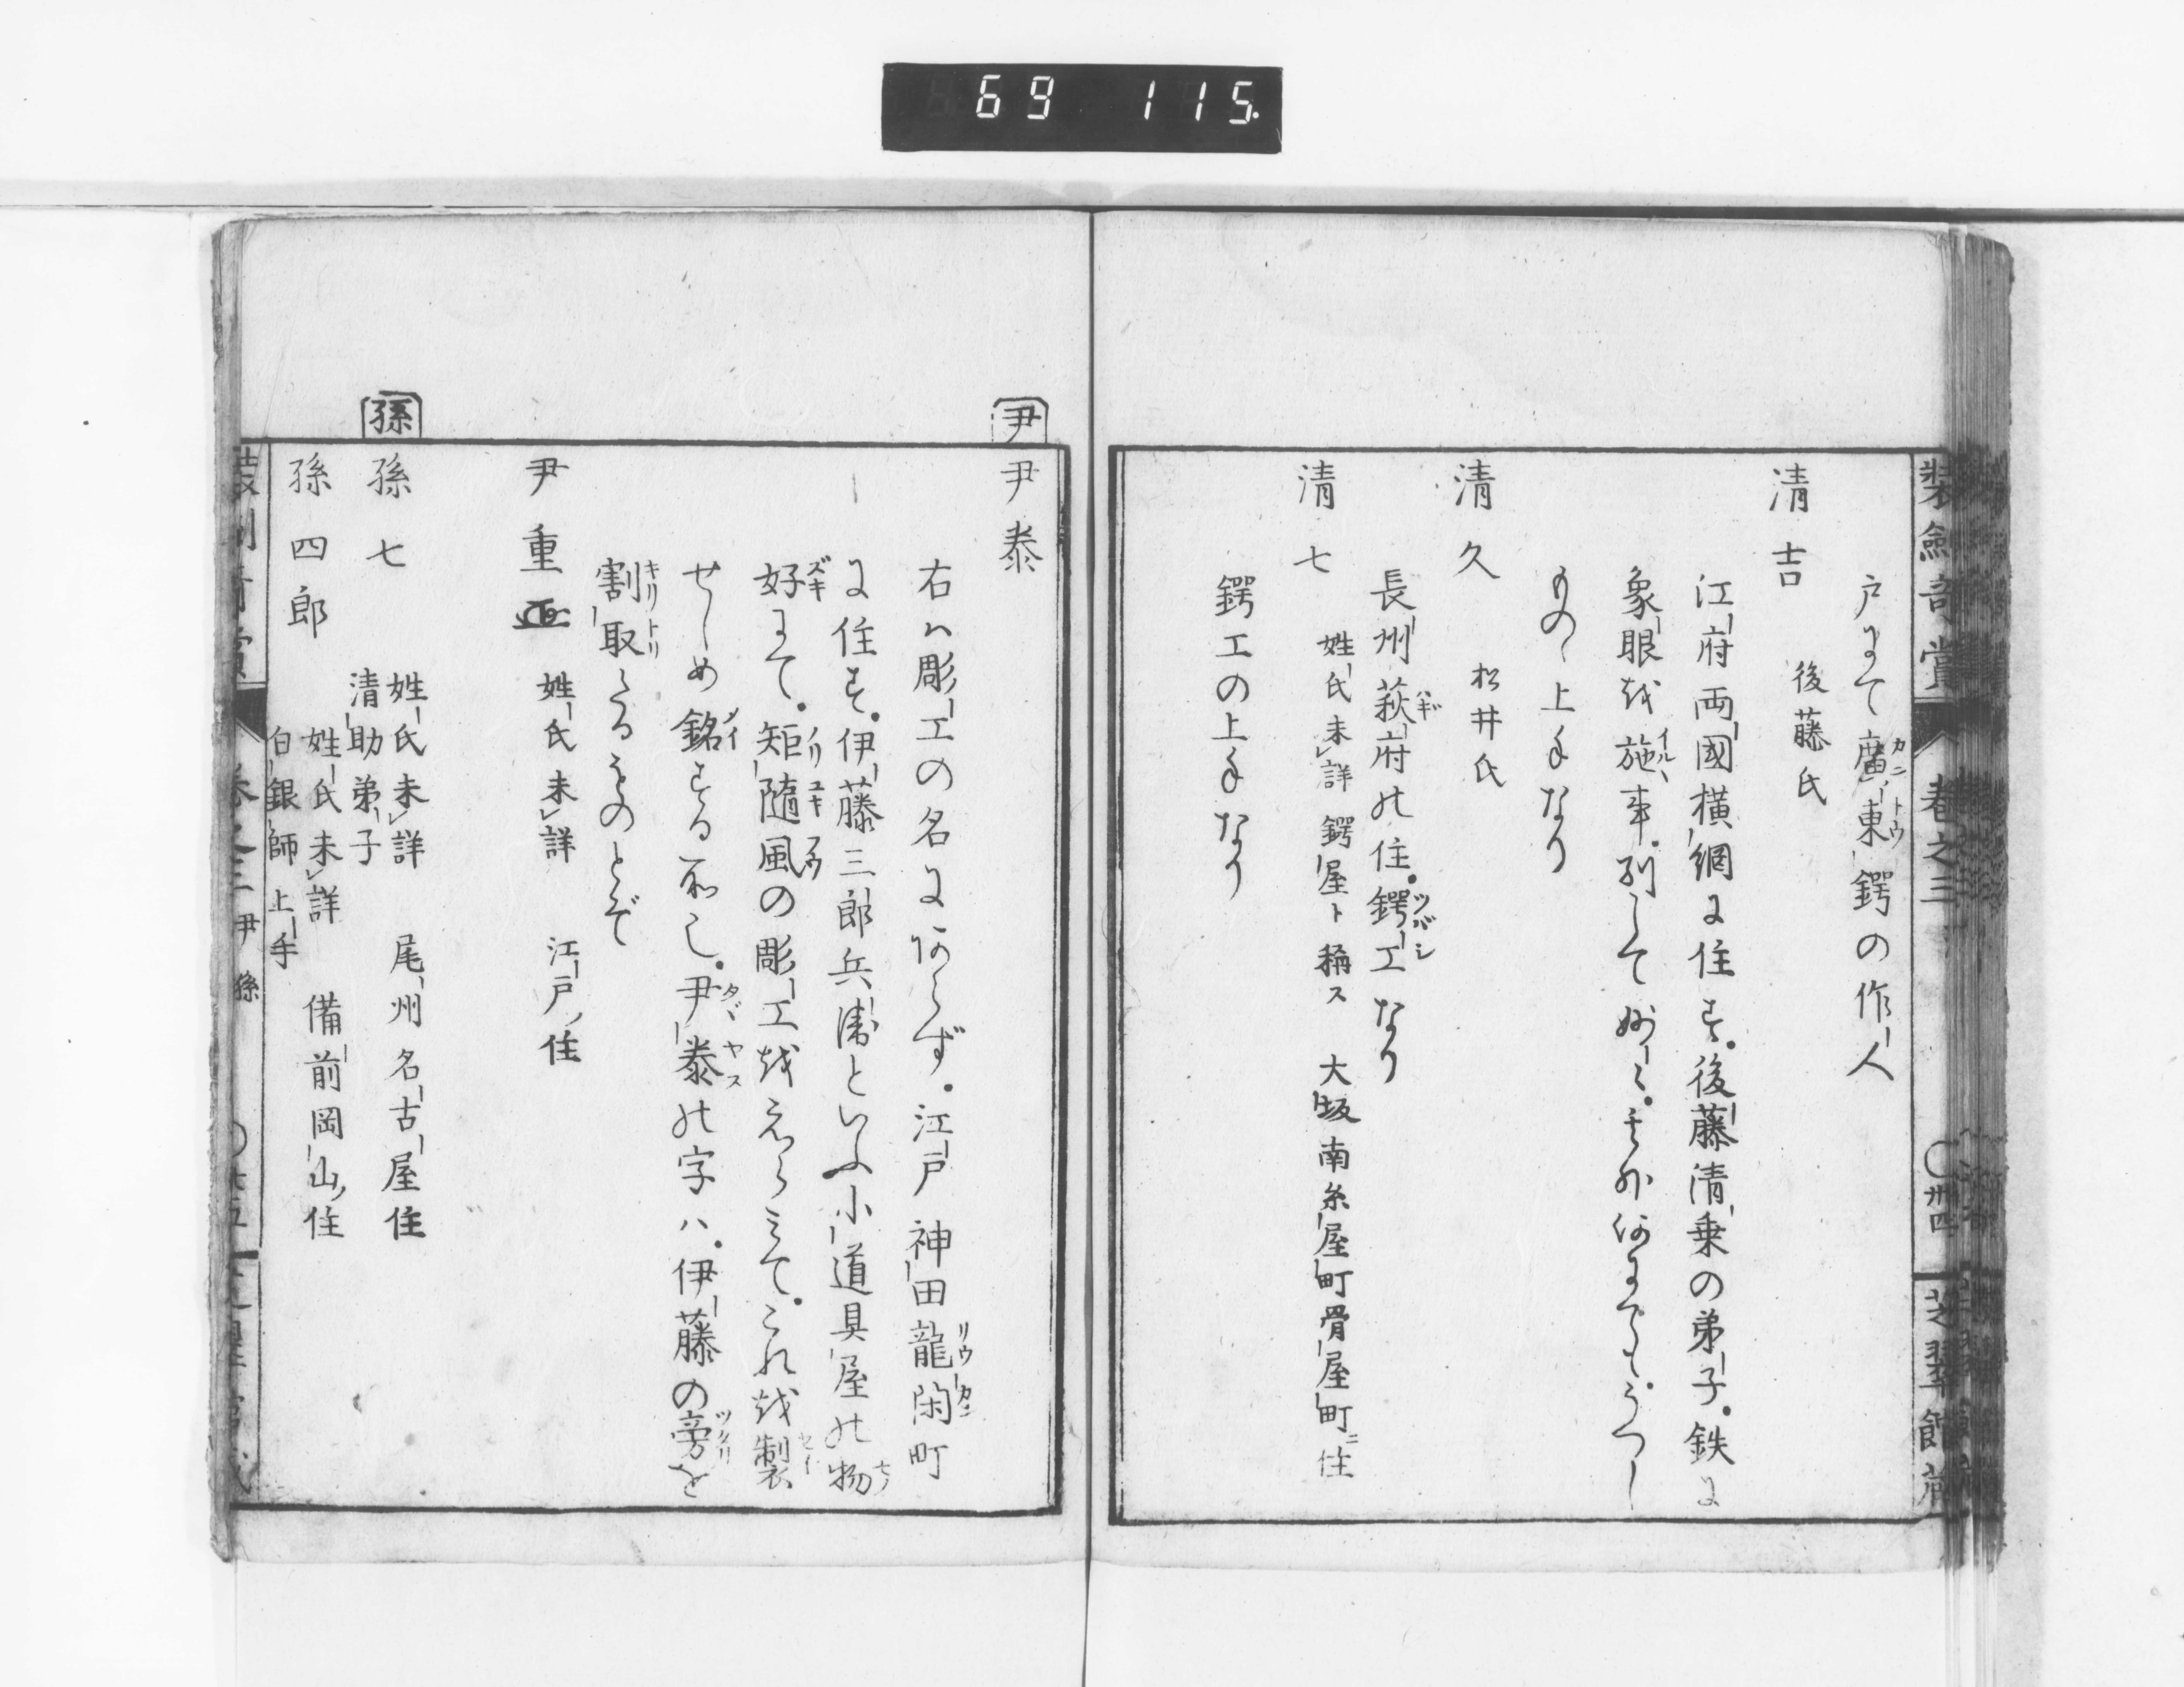 69 115.
装劔奇賞 巻之三 〇卅四 芝翠館蔵
戸にて廣東鍔の作人
清吉 後藤氏
江府両國横網に住す。後藤清乗の弟子。鉄に
象眼を施事。別して妙〻。其外何にても。うつし
もの〻上手なり
清久 松井氏
長州萩府の住。鍔工なり
清七 姓氏未詳 鍔屋ト稱ス 大坂南糸屋町骨屋町ニ住
鍔工の上手なり
尹
尹泰
右ハ彫工の名にあらず。江戸神田龍閑町
に住す。伊藤三郎兵衛といふ小道具屋の物
好にて。矩随風の彫工をえらミて。これを製
せしめ銘する所也。尹泰の字ハ。伊藤の旁を
割取たるものとぞ
尹重 姓氏未詳 江戸住
孫
孫七 姓氏未詳 尾州名古屋住
清助弟子
孫四郎 姓氏未詳 備前岡山住
白銀師上手
巻之三 尹 孫